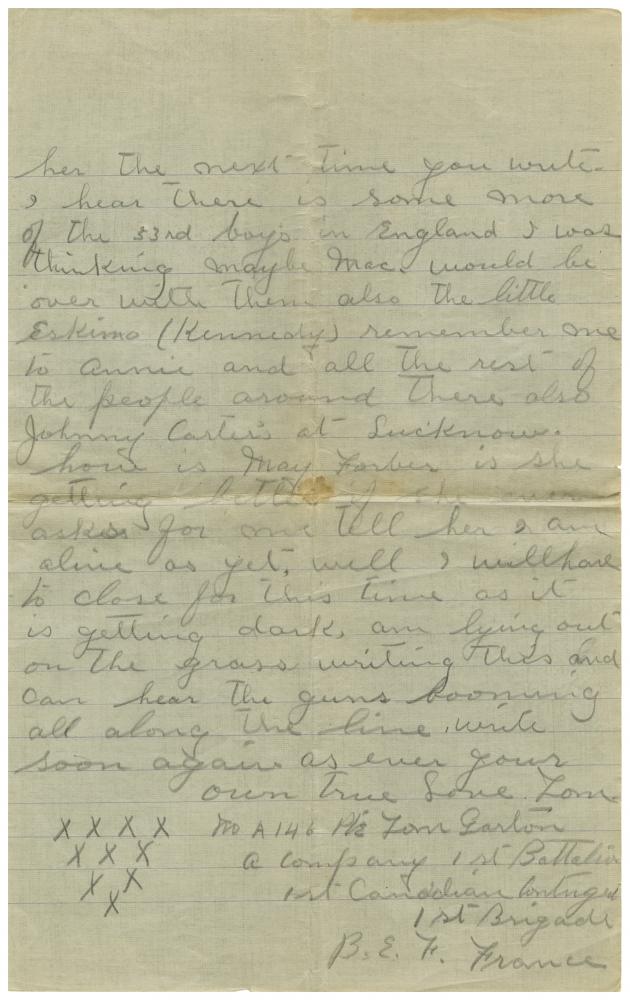 her the next time you write.
I hear there is some more
of the 33rd boys in England I was
thinking maybe Mac. would be
over with them also the little
Eskimo (Kennedy) remember me
to Annie and all the rest of
the people around there also
Johnny Carter's at Lucknow.
how is May Forber is she
getting better if she ever
asks for me tell her I am
alive as yet, well I will have
to close for this time as it
is getting dark, am lying out
on the grass writing this and
can hear the guns booming
all along the line, write
soon again as ever your
own true Love Tom
X X X X No A146 Pte Tom Garton
X X X a company 1st Battalion
X X 1st Canadian Contingent
X 1st Brigade
B. E. F. France